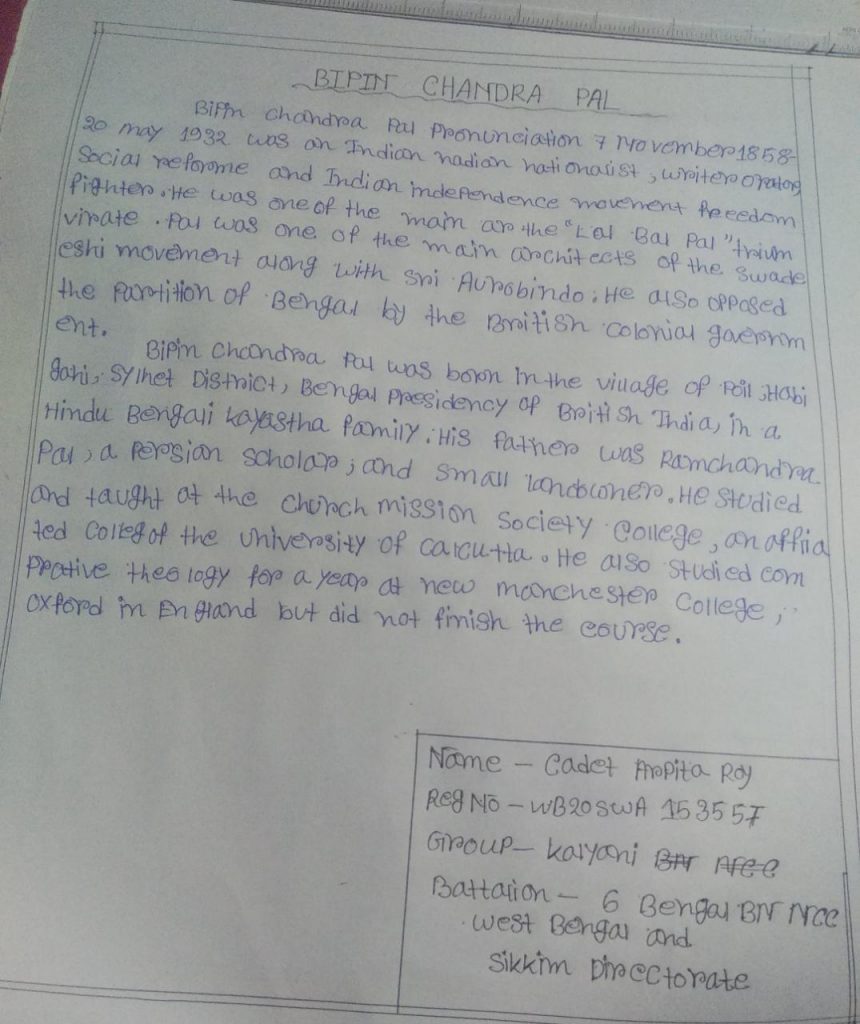 BIPIN CHANDRA PAL
Bipin chandra Pal Pronunciation 7 November 1858-
20 may 1932 was an Indian nadian nationalist, writer orator,
Social reforme and Indian independence movement freedom
fighter. He was one of the main ar the "Lal Bal Pal" trium
virate. Pal was one of the main architects of the Swade
eshi movement along with Sri Aurobindo. He also opposed
the Partition of Bengal by the British colonial gaernm
ent.
Bipin Chandra Pal was born in the village of Poil, Habi
Ganj, Sylhet District, Bengal Presidency of British India, in a
Hindu Bengali Kayastha family. His father was Ramchandra
Pal, a Persian scholar, and small landowner. He studied
and taught at the Church mission Society College, an affilia
ted Colleg of the university of Calcutta. He also studied com
prative theology for a year at new manchester College,
oxford in England but did not finish the course.
Name - Cadet Arpita Roy
Reg No - WB20SWA 153557
Group - Kalyani BN NCC
Battalion - 6 Bengal BN NCC
West Bengal and
Sikkim Directorate